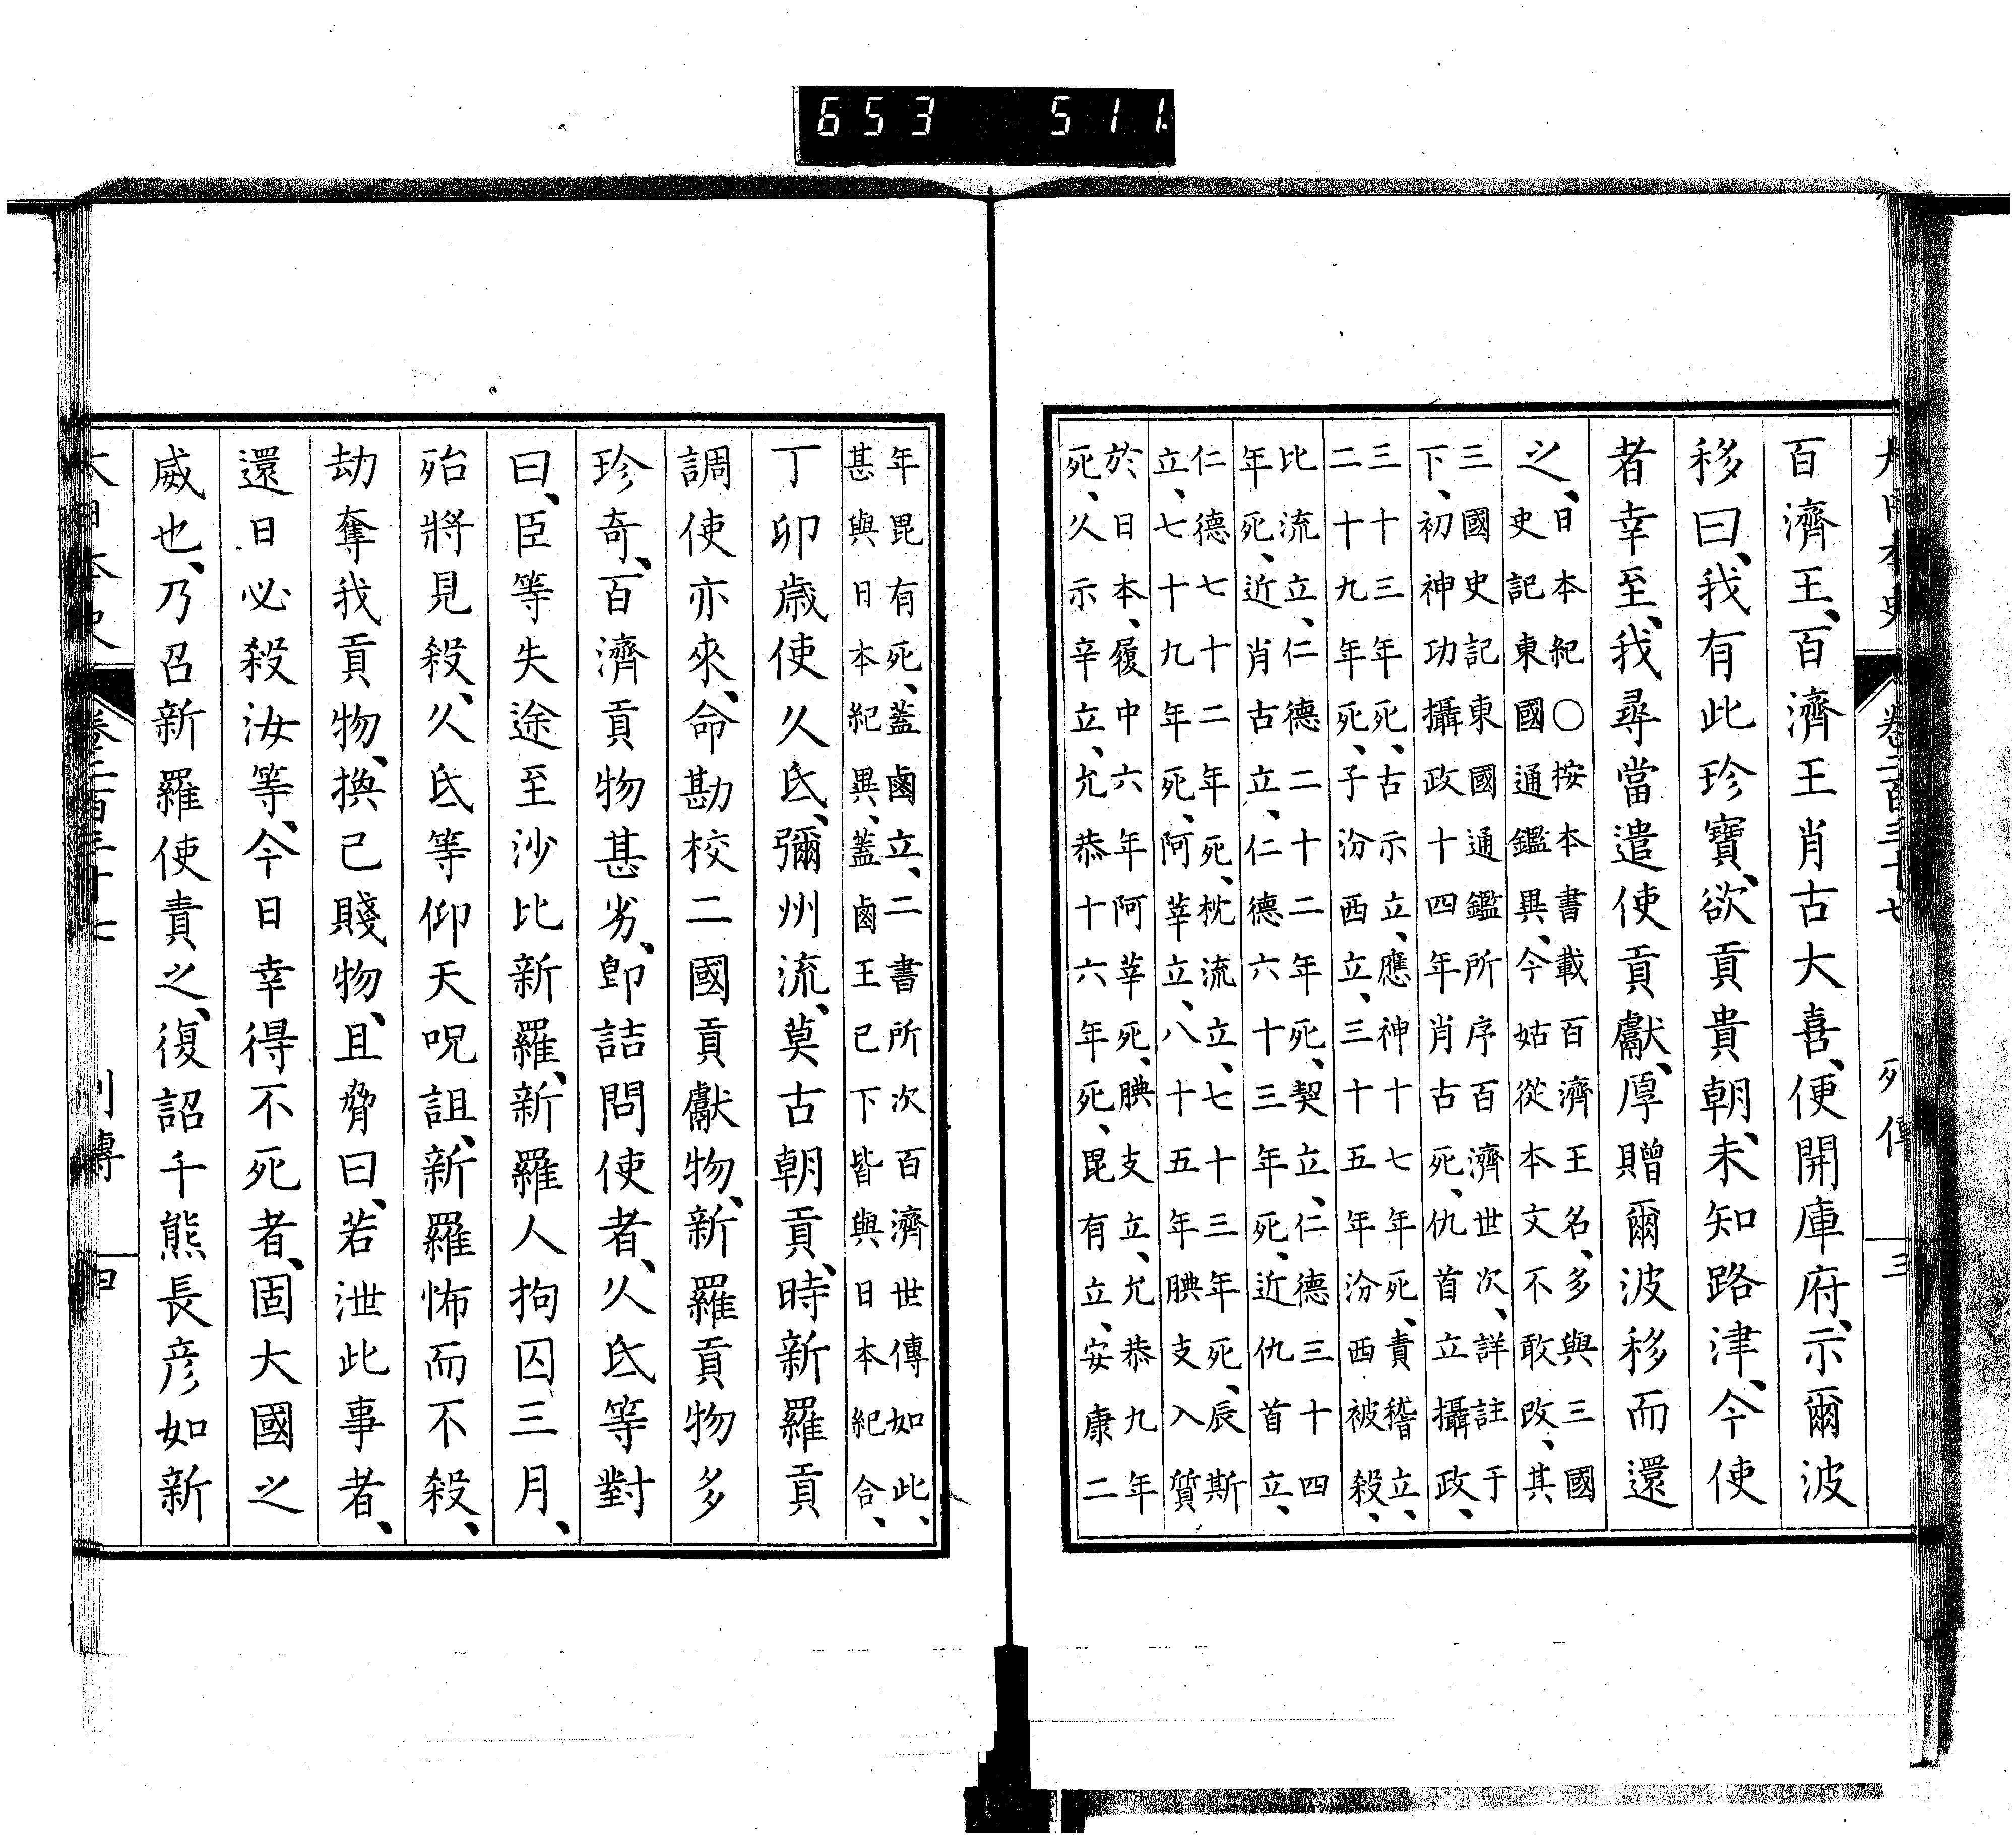 653 511.
大日本史 卷二百三十七 列傳 三
百濟王、百濟王肖古大喜、便開庫府、示爾波
移曰、我有此珍寶、欲貢貴朝、未知路津、今使
者幸至、我尋當遣使貢獻、厚贈爾波移而還
之、
日本紀○按本書載百濟王名、多與三國
史記東國通鑑異、今姑從本文不敢改、其
三國史記東國通鑑所序百濟世次、詳註于
下、初神功攝政十四年肖古死、仇首立攝政、
三十三年死、古示立、應神十七年死、責稽立、
二十九年死、子汾西立、三十五年汾西被殺、
比流立、仁德二十二年死、契立、仁德三十四
年死、近肖古立、仁德六十三年死、近仇首立、
仁德七十二年死、枕流立、七十三年死、辰斯
立、七十九年死、阿莘立、八十五年腆支入質
於日本、履中六年阿莘死、腆支立、允恭九年
死、久示辛立、允恭十六年死、毘有立、安康二
年毘有死、蓋鹵立、二書所次百濟世傳如此、
甚與日本紀異、蓋鹵王已下皆與日本紀合、
丁卯歲使久氐、彌州流、莫古朝貢、時新羅貢
調使亦來、命勘校二國貢獻物、新羅貢物多
珍奇、百濟貢物甚劣、卽詰問使者、久氐等對
曰、臣等失途至沙比新羅、新羅人拘囚三月、
殆將見殺、久氐等仰天呪詛、新羅怖而不殺、
劫奪我貢物、換己賤物、且脅曰、若泄此事者、
還日必殺汝等、今日幸得不死者、固大國之
威也、乃召新羅使責之、復詔千熊長彦如新
大日本史 卷二百三十七 列傳 四